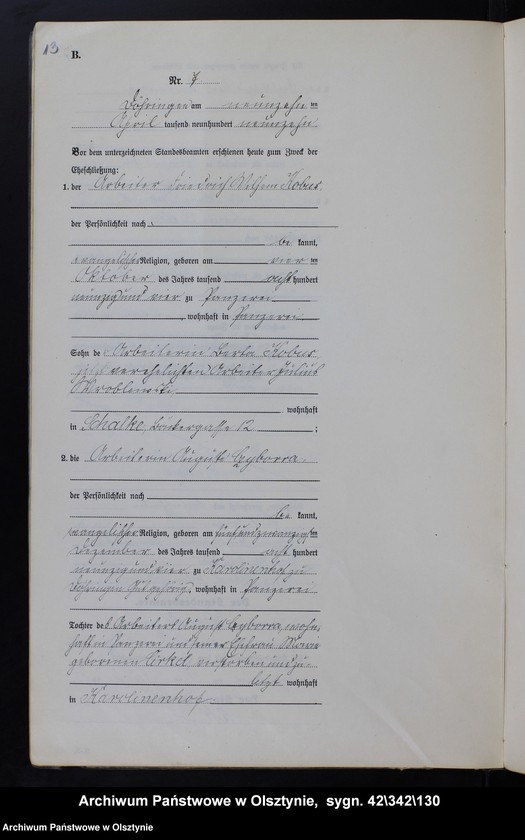 13
B.
Nr. 7
Döhringen am neunzehnten
April tausend neunhundert neunzehn
Vor dem unterzeichneten Standesbeamten erschienen heute zum Zweck der
Eheschließung:
1. der Arbeiter Friedrich Wilhelm Kobus
der Persönlichkeit nach
be kannt,
evangelischer Religion, geboren am vierten
Oktober des Jahres tausend acht hundert
neunzig und vier zu Panzerei
, wohnhaft in Panzerei
Sohn der Arbeiterin Berta Kobus
jetzt verehelichten Arbeiter Julius
Wroblewski
wohnhaft
in Schalke, 12 ;
2. die Arbeiterin Auguste Cyborra
der Persönlichkeit nach
be kannt,
evangelischer Religion, geboren am fünfundzwanzigsten
Dezember des Jahres tausend acht hundert
neunzig und vier zu Karolinenhof zu
Döhringen Gut gehörig, wohnhaft in Panzerei
Tochter des Arbeiters August Cyborra, wohn-
haft in Panzerei und seiner Ehefrau
geborenen Zirkel verstorben und zu-
letzt wohnhaft
in Karolinenhof.
Archiwum Państwowe w Olsztynie, sygn. 42\342\130
Archiwum Państwowe w Olsztynie